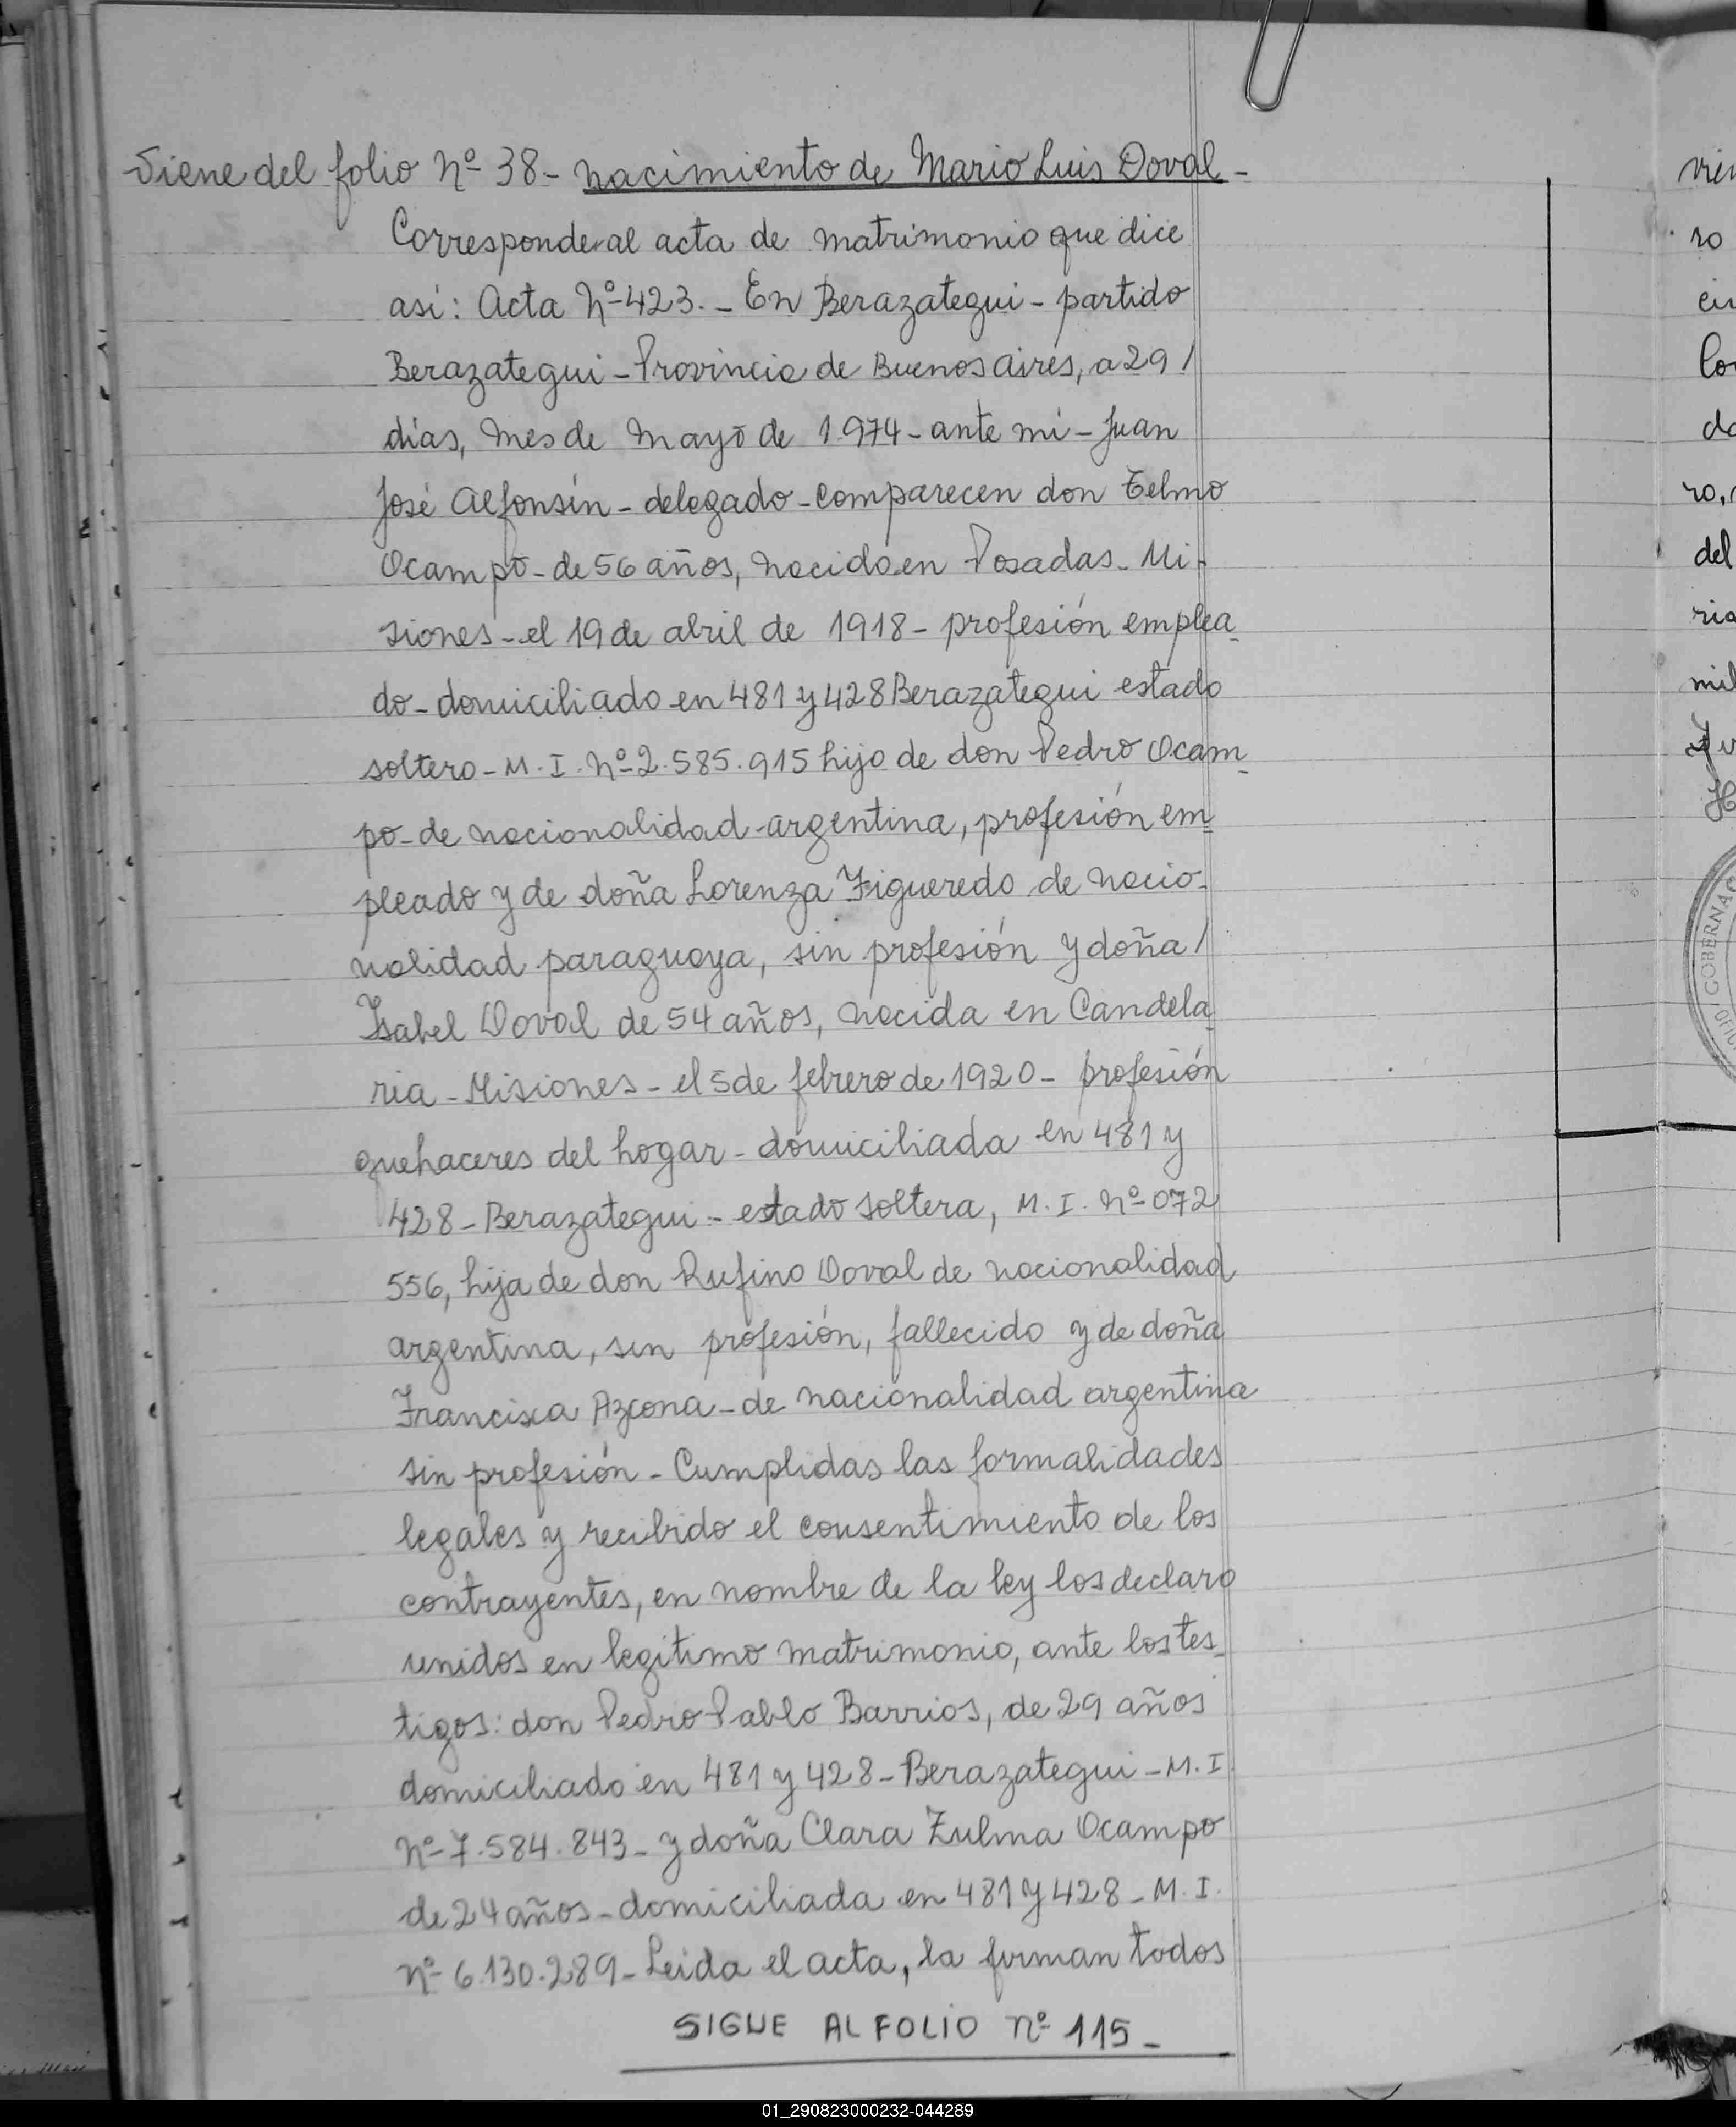 Viene del folio Nº 38 - nacimiento de Mario Luis Doval -
Corresponde al acta de matrimonio que dice
así: Acta Nº 423. - En Berazategui - partido
Berazategui - Provincia de Buenos aires, a 29 /
días, mes de mayo de 1.974 - ante mi - Juan
José Alfonsín - delegado - comparecen don Telmo
Ocampo - de 56 años, nacido en Posadas - Mi -
siones - el 19 de abril de 1918 - profesión emplea -
do - domiciliado en 481 y 428 Berazategui estado
soltero - M. I. Nº 2.585.915 hijo de don Pedro Ocam -
po - de nacionalidad argentina, profesión em -
pleado y de doña Lorenza Figueredo de nacio -
nalidad paraguaya, sin profesión y doña /
Isabel Doval de 54 años, nacida en Candela -
ria - Misiones - el 5 de febrero de 1920 - profesión
quehaceres del hogar - domiciliada en 481 y
428 - Berazategui - estado soltera, M. I. Nº 072
556, hija de don Rufino Doval de nacionalidad
argentina, sin profesión, fallecido y de doña
Francisca Azcona - de nacionalidad argentina
sin profesión - Cumplidas las formalidades
legales y recibido el consentimiento de los
contrayentes, en nombre de la ley los declaro
unidos en legítimo matrimonio, ante los tes -
tigos: don Pedro Pablo Barrios, de 29 años
domiciliado en 481 y 428 - Berazategui - M. I
Nº 7.584.843 - y doña Clara Zulma Ocampo
de 24 años - domiciliada en 481 y 428 - M. I.
Nº 6.130.289 - Leída el acta, la firman todos
SIGUE AL FOLIO Nº 115 -
ro
del
01_290823000232-044289